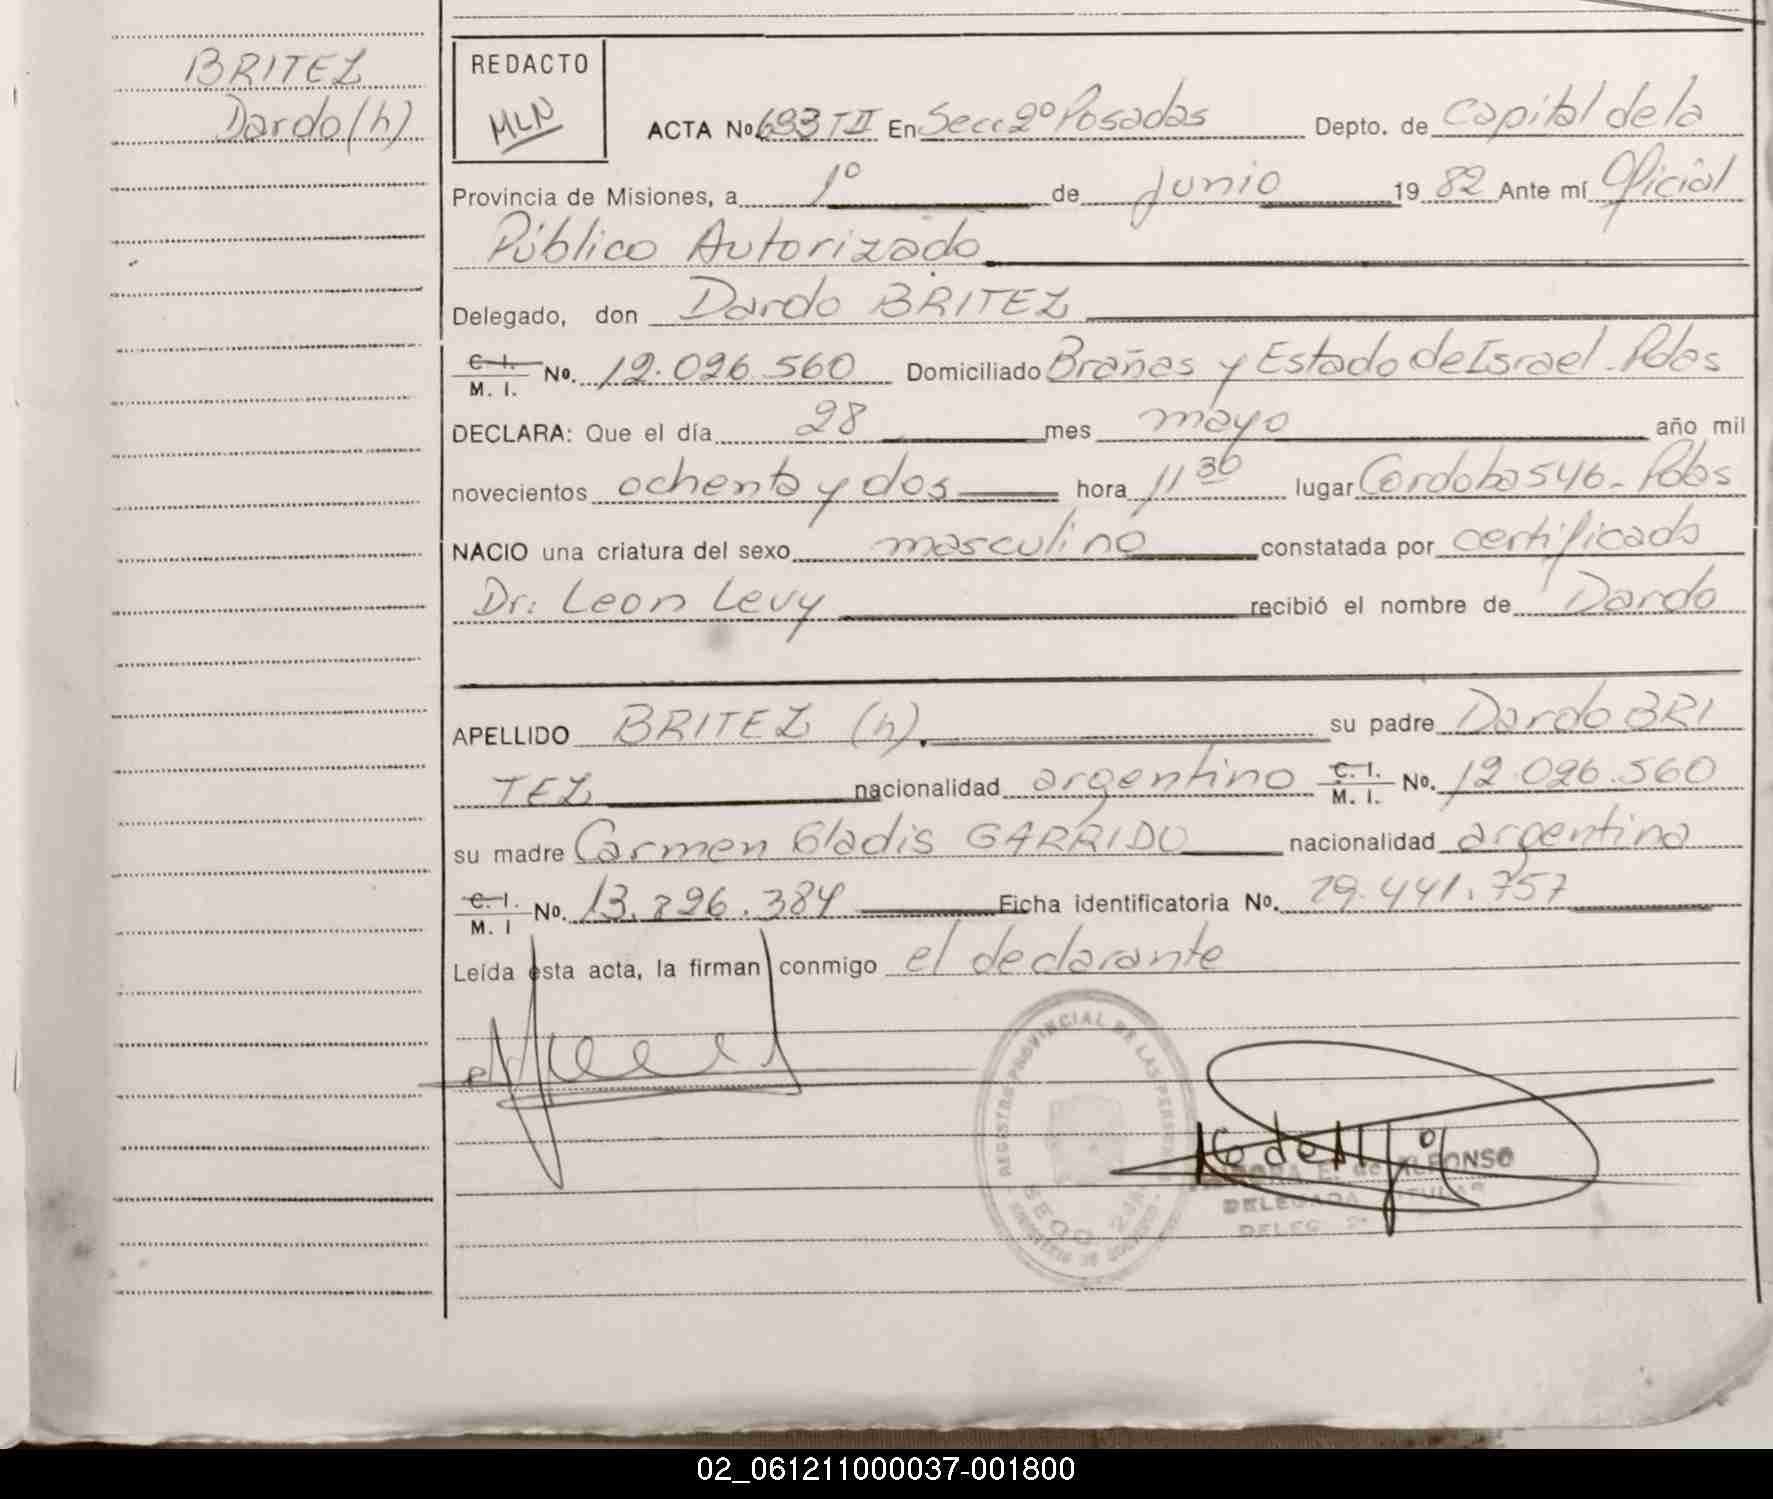 BRITEZ
Dardo (h)
REDACTO
MLN
ACTA No. 693 TII En Secc 2º Posadas Depto. de Capital de la
Provincia de Misiones, a 1º de junio 19 82 Ante mí Oficial
Público Autorizado
Delegado, don Dardo BRITEZ
C. I. / M. I. No. 12.026.560 Domiciliado Brañas y Estado de Israel - Pdas
DECLARA: Que el día 28 mes mayo año mil
novecientos ochenta y dos hora 11 30 lugar Cordoba 546 - Pdas
NACIO una criatura del sexo masculino constatada por certificado
Dr: Leon Levy recibió el nombre de Dardo
APELLIDO BRITEZ (h). su padre Dardo BRI
TEZ nacionalidad argentino C. I. / M. I. No. 12.026.560
su madre Carmen Gladis GARRIDO nacionalidad argentina
C. I. / M. I No. 13.896.384 Ficha identificatoria No. 29.441.757
Leída esta acta, la firman conmigo el declarante
REGISTRO PROVINCIAL DE LAS PERSONAS
de ALFONSO
DELEGADA TITULAR
DELEG. 2ª
02_061211000037-001800